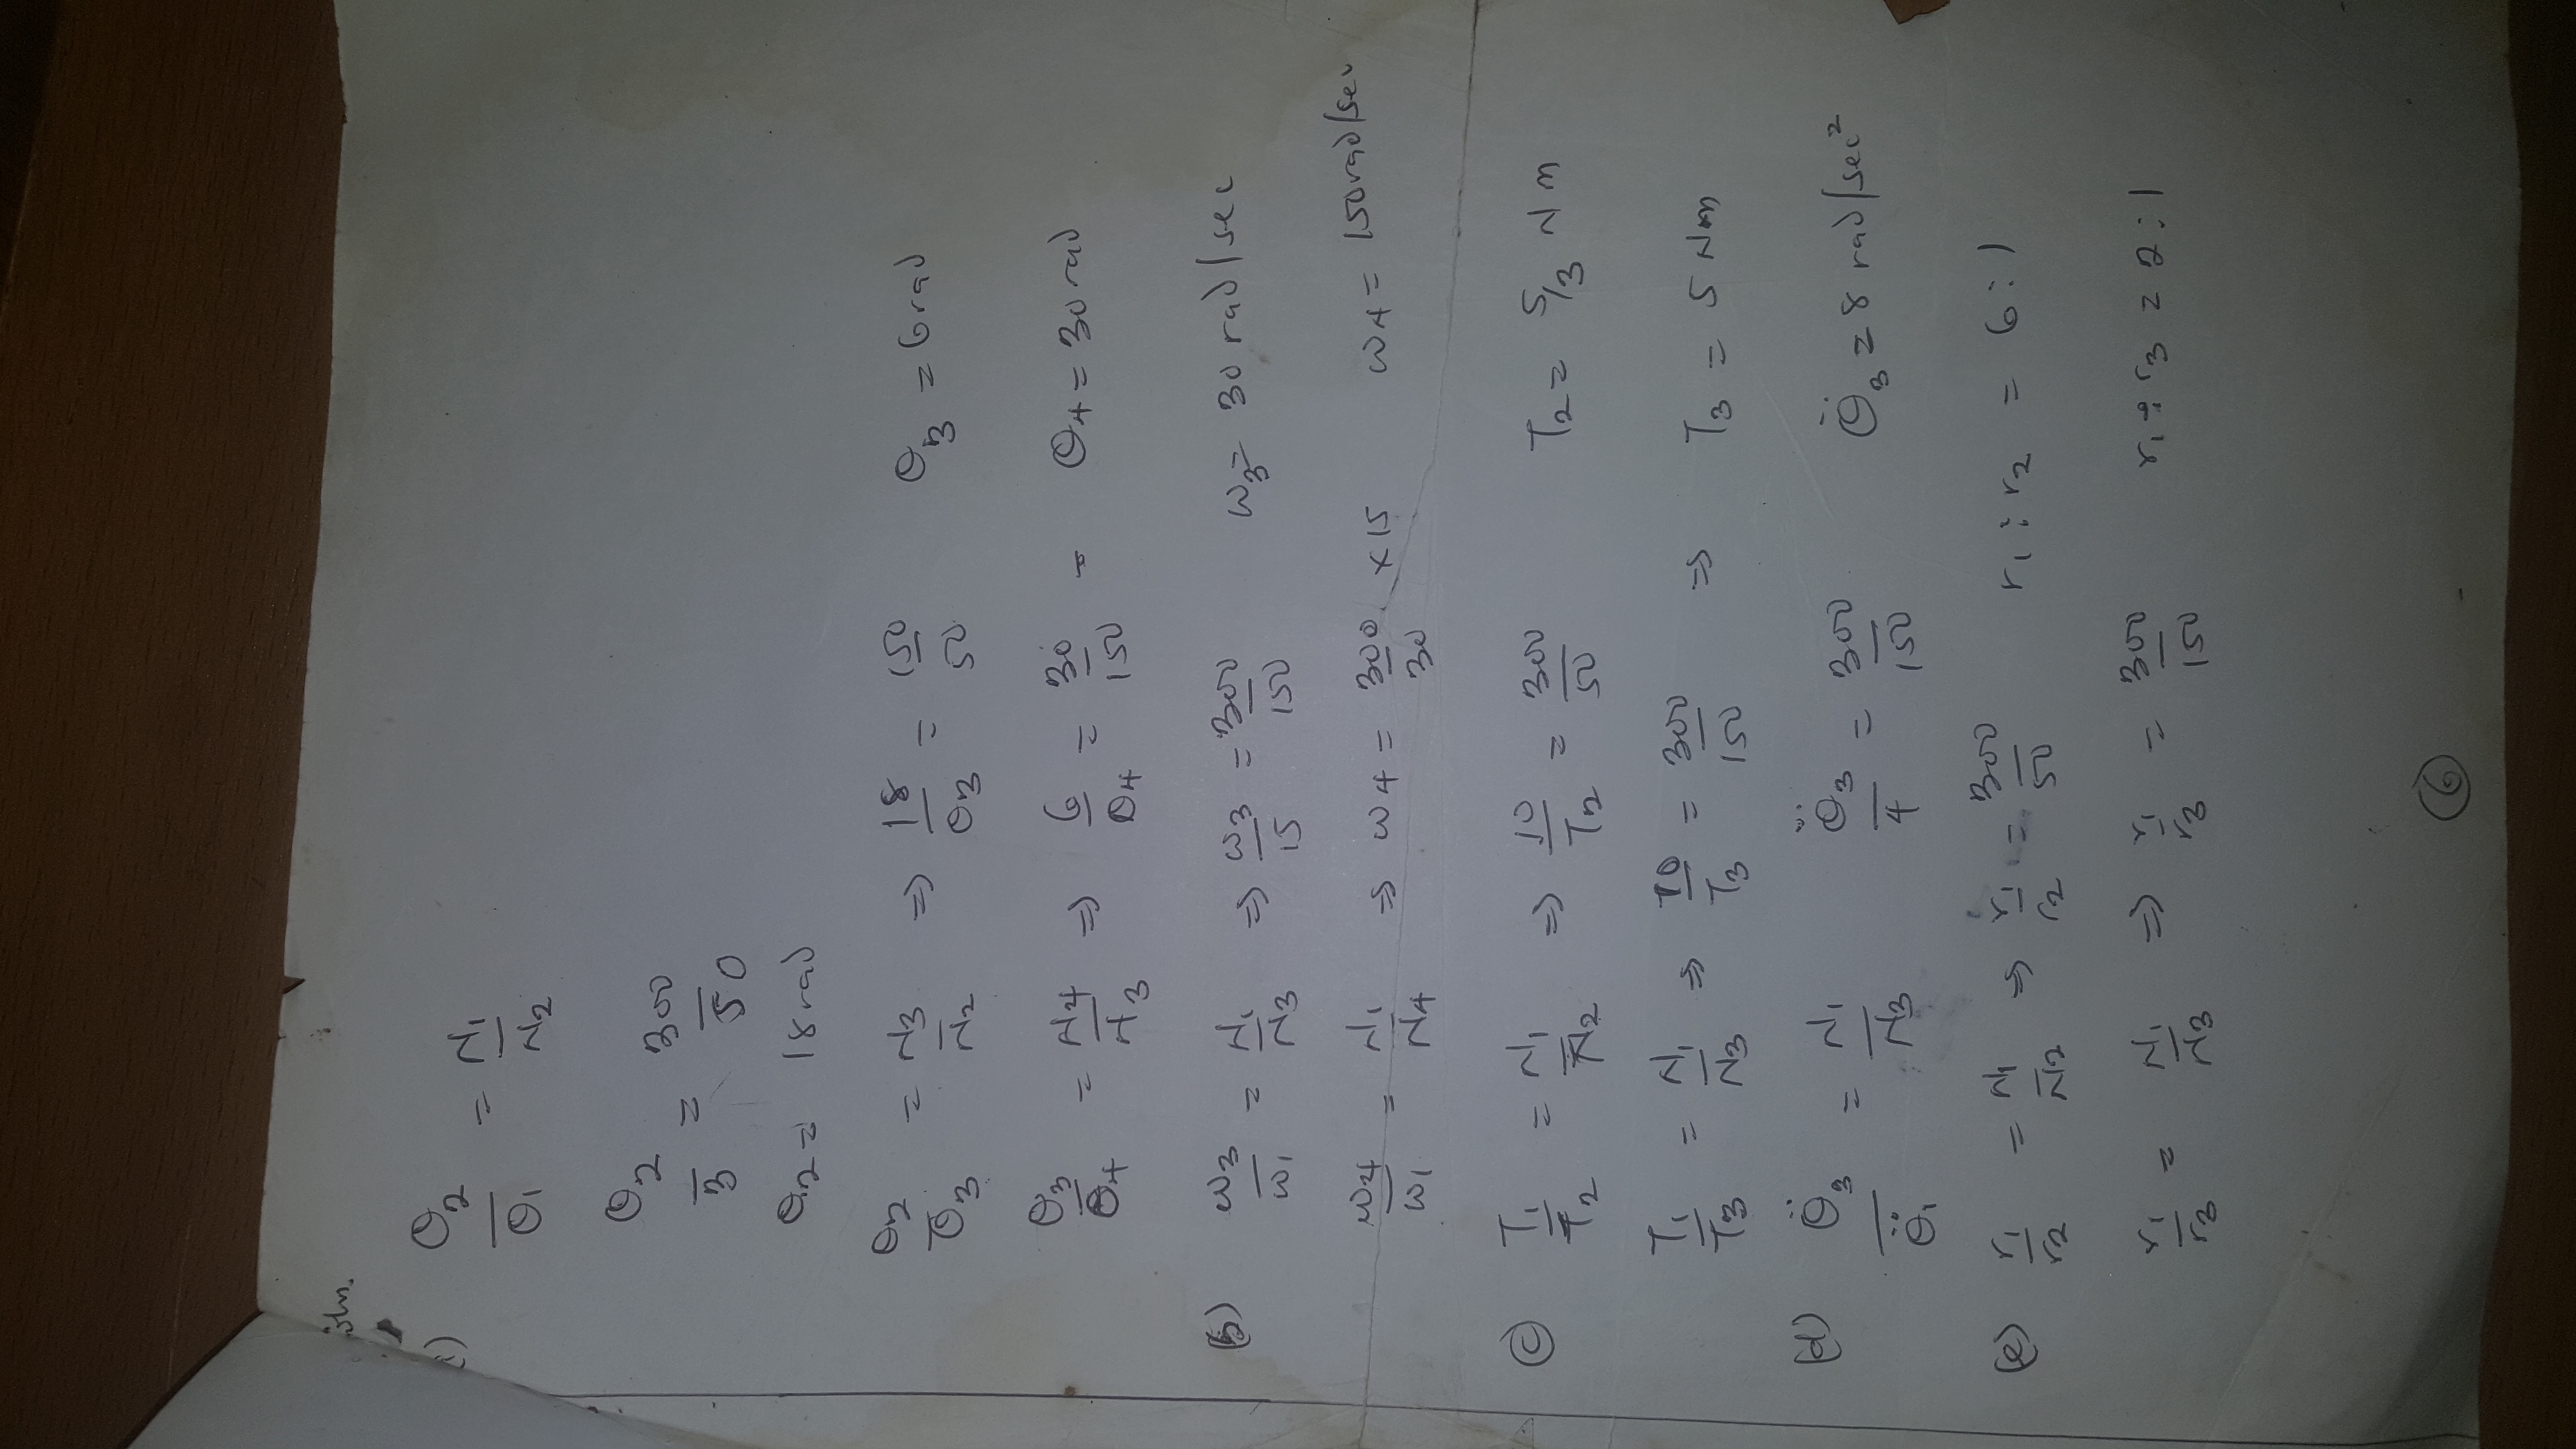 soln.
i) θ₂/θ₁ = N₁/N₂
θ₂/3 = 300/50
θ₂ = 18 rad
θ₂/θ₃ = N₃/N₂ ⇒ 18/θ₃ = 150/50 θ₃ = 6 rad
θ₃/θ₄ = N₄/N₃ ⇒ 6/θ₄ = 30/150 = θ₄ = 30 rad
(b) ω₃/ω₁ = N₁/N₃ ⇒ ω₃/15 = 300/150 ω₃ = 30 rad/sec
ω₄/ω₁ = N₁/N₄ ⇒ ω₄ = 300/30 × 15 ω₄ = 150 rad/sec
(c) T₁/T₂ = N₁/N₂ ⇒ 10/T₂ = 300/50 T₂ = 5/3 Nm
T₁/T₃ = N₁/N₃ ⇒ 10/T₃ = 300/150 ⇒ T₃ = 5 Nm
(d) θ̈₃/θ̈₁ = N₁/N₃ θ̈₃/4 = 300/150 θ̈₃ = 8 rad/sec²
(e) r₁/r₂ = N₁/N₂ ⇒ r₁/r₂ = 300/50 r₁ : r₂ = 6 : 1
r₁/r₃ = N₁/N₃ ⇒ r₁/r₃ = 300/150 r₁ : r₃ = 2 : 1
6